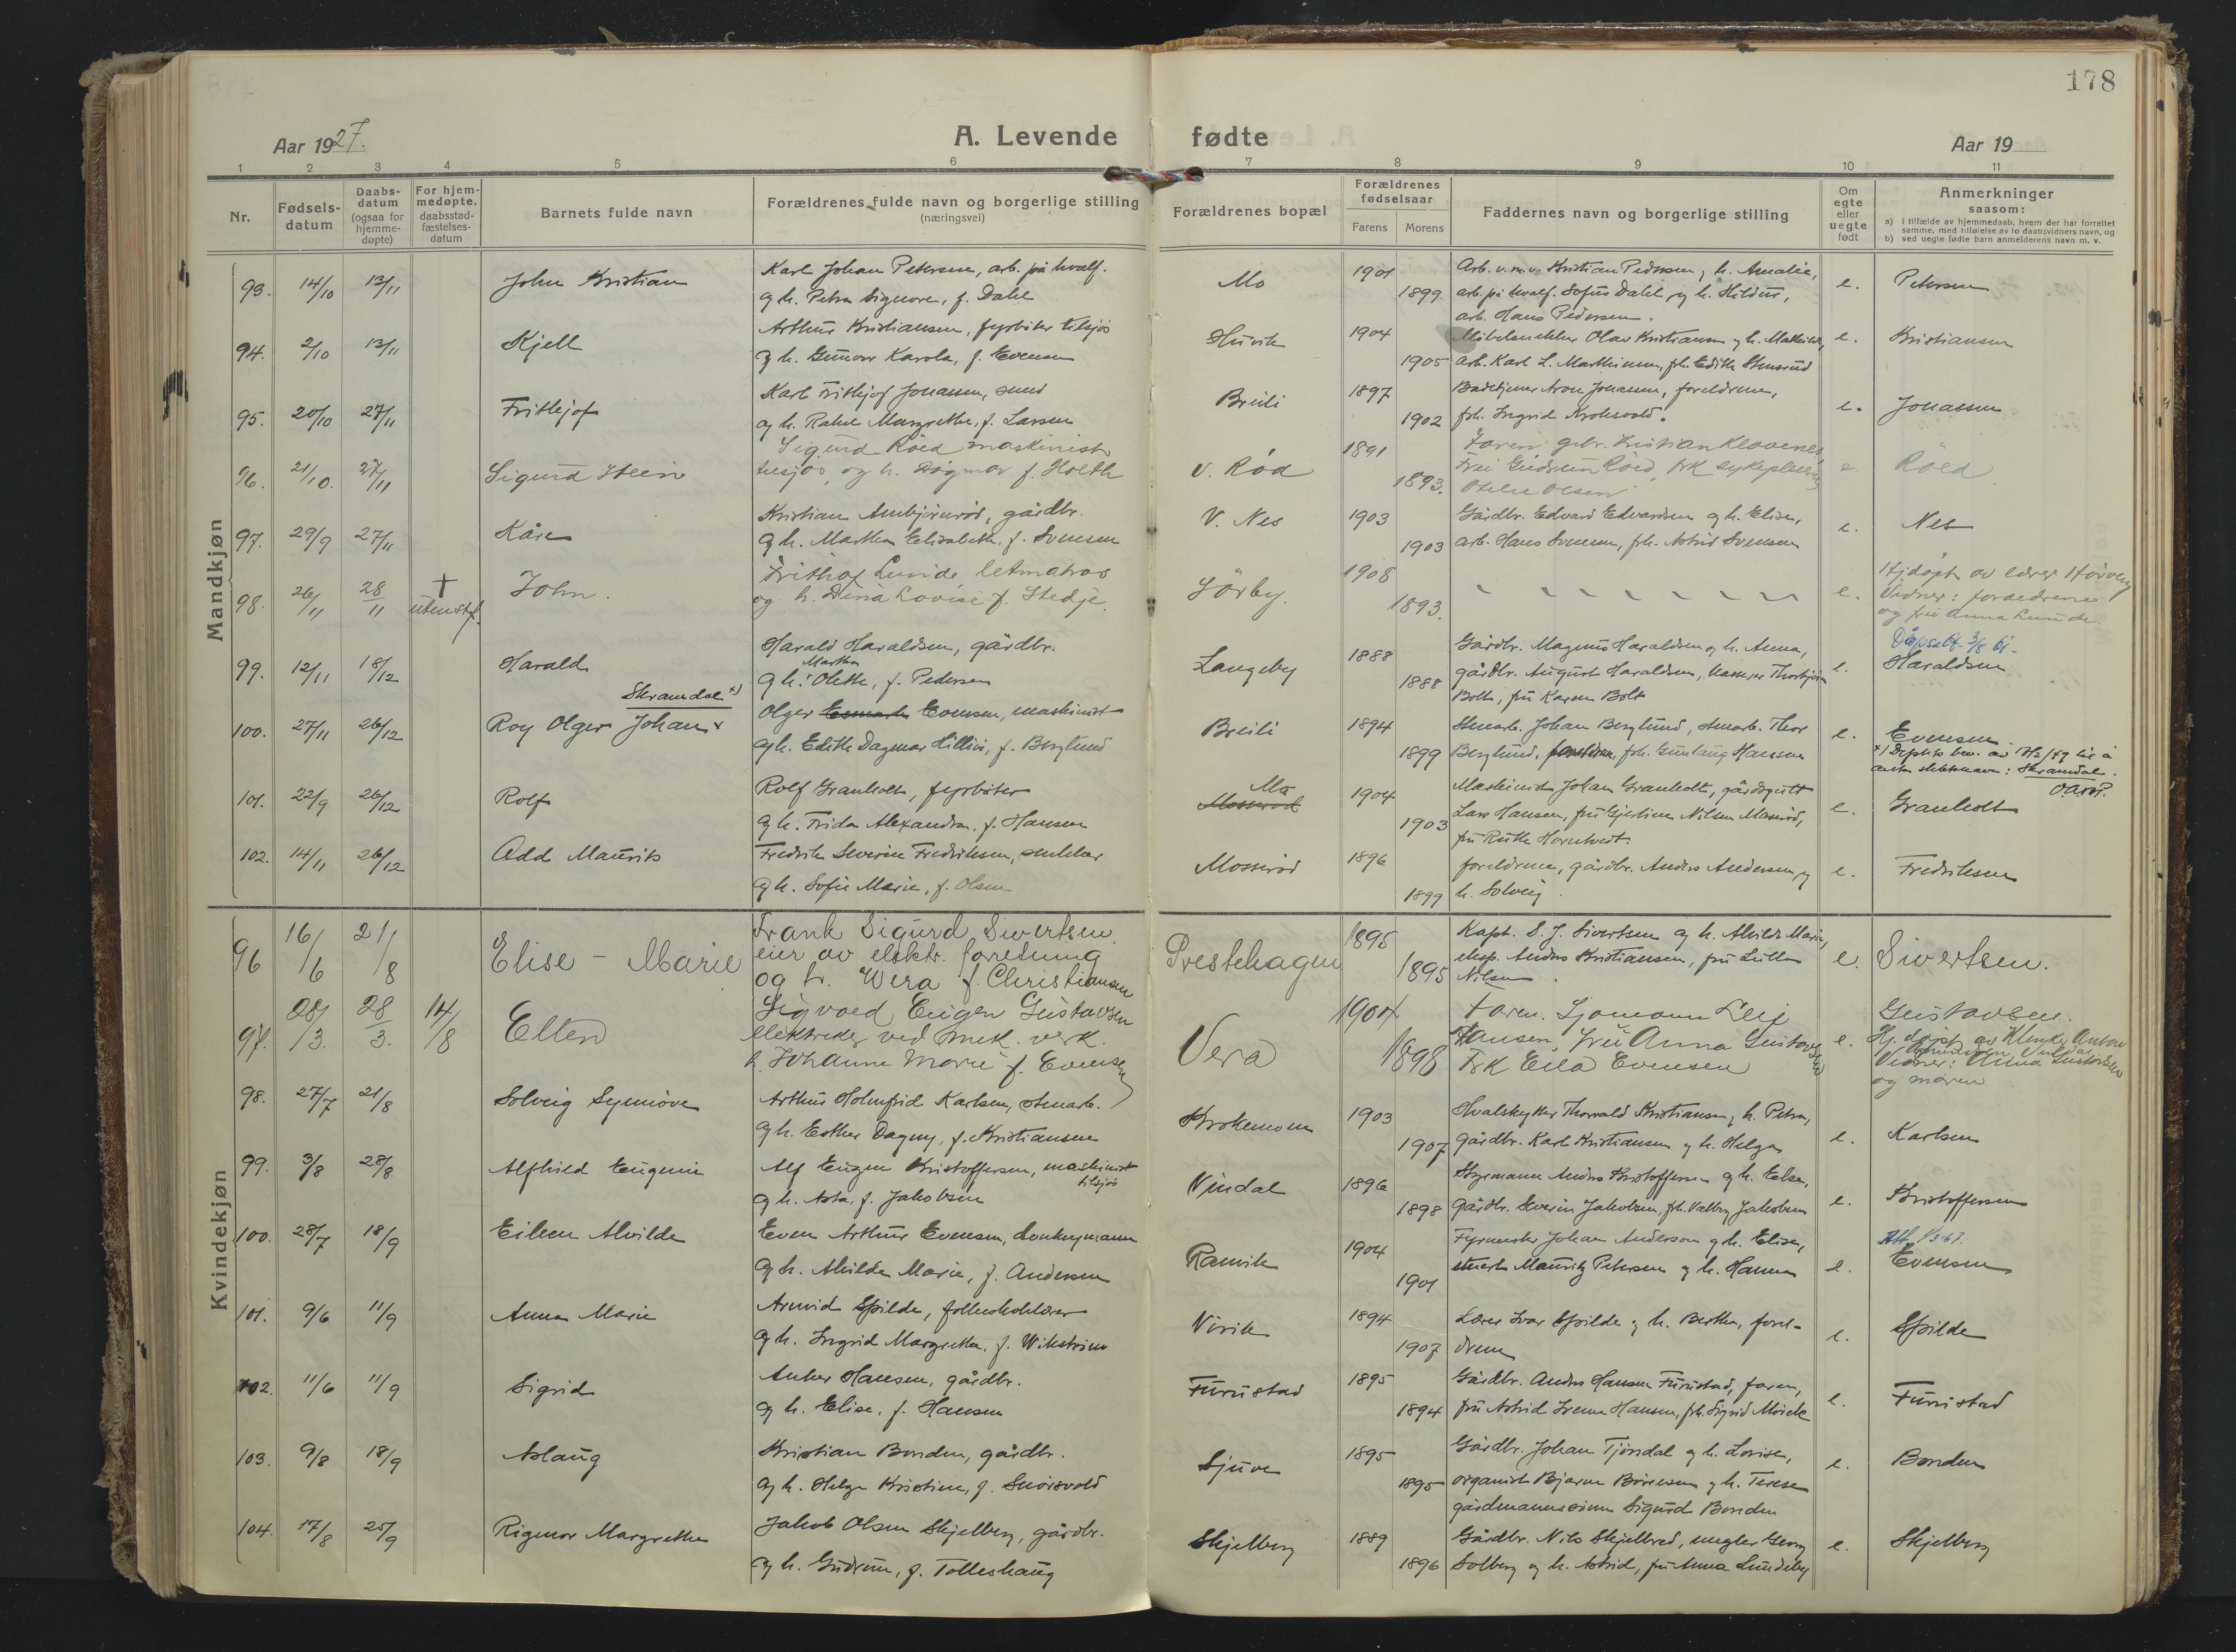 178
Aar 1927.
A. Levende fødte
Aar 19
1 2 3 4 5 6 7 8 9 10 11
Nr.
Fødsels-
datum
Daabs-
datum
(ogsaa for
hjemme-
døpte)
For hjem-
medøpte,
daabsstad-
fæstelses-
datum
Barnets fulde navn
Forældrenes fulde navn og borgerlige stilling
(næringsvei)
Forældrenes bopæl
Forældrenes
fødselsaar
Farens Morens
Faddernes navn og borgerlige stilling
Om
egte
eller
uegte
født
Anmerkninger
saasom:
a) i tilfælde av hjemmedaab, hvem der har forrettet
samme, med tilføielse av to daabsvidners navn, og
b) ved uegte fødte barn anmelderens navn m. v.
Mandkjøn
93. 14/10 13/11 John Kristian
Karl Johan Petersen, arb. på hvalf.
og h. Petra Signore, f. Dahl
Mo 1901 1899
Arb. v. m. v. Kristian Pedersen og h. Amalie,
arb. på hvalf. Sofus Dahl og h. Hildur,
arb. Hans Pedersen.
e. Petersen
94. 2/10 13/11 Kjell
Arthur Kristiansen, fyrbøter tilsjøs
og h. Gunvor Karola, f. Evensen
Huvik 1904 1905
Møbelsnekker Olav Kristiansen og h. Mathilde,
arb. Karl L. Marthinsen, frk. Edith Stensrud
e. Kristiansen
95. 20/10 27/11 Frithjof
Karl Frithjof Jonassen, smed
og h. Rakel Margrethe, f. Larsen
Breili 1897 1902
Badetjener Aron Jonassen, foreldrene,
frk. Ingrid Krohsvold.
e. Jonassen
96. 21/10. 27/11 Sigurd Stein
Sigurd Röed maskinist
tilsjøs, og h. Dagmar f. Holth
V. Rød 1891 1893.
Faren, gbr. Kristian Klavenes
Fru Gudrun Röed, frk sykepleier
Otelie Olsen
e. Röed
97. 29/9 27/11 Kåre
Kristian Ambjörnröd, gårdbr.
og h. Martha Elisabeth, f. Svensen
V. Nes 1903 1903
Gårdbr. Edvard Edvardsen og h. Elise,
arb. Hans Svensen, frk. Astrid Svensen
e. Nes
98. 26/11 28/11 † uten stf. John.
Frithof Lunde, letmatros
og h. Dina Lovise f. Stedje.
Sörby. 1908 1893.
e.
Hj.döpt av lærer
Vidner: foreldrene
og fru Anna Lunde.
99. 12/11 18/12 Harald
Harald Haraldsen, gårdbr.
Martha
og h. Olette, f. Pedersen
Langeby 1888 1888
Gårdbr. Magnus Haraldsen og h. Anna,
gårdbr. August Haraldsen, Thorbjørn
Bolt, fru Karen Bolt
e.
Dåpsatt. 3/8 61.
Haraldsen
100. 27/11 26/12 Roy Olger Johan x
Skramdal x)
Olger Evensen, maskinist
og h. Edith Dagmar Hillevi, f. Berglund
Breili 1894 1899
Stenarb. Johan Berglund, stenarb. Thor
Berglund, foreldrene, frk. Gunlaug Hansen
e. Evensen
x) Deptets bev. av 17/2/49 til å
anta slektsnavn: Skramdal.
101. 22/9 26/12 Rolf
Rolf Granholt, fyrbøter
og h. Frida Alexandra, f. Hansen
Mo
Mosserød 1904 1903
Maskinist Johan Granholt, gårdsgutt
Lars Hansen, fru Gjertine Nilsen Moserød,
fru Ruth Horntvedt.
e. Granholt
102. 14/11 26/12 Odd Mauritz
Fredrik Severin Fredriksen, snekker
og h. Sofie Marie, f. Olsen
Mosserød 1896 1899
foreldrene, gårdbr. Anders Andersen og
h. Solveig.
e. Fredriksen
Kvindekjøn
96 16/6 21/8 Elise - Marie
Frank Sigurd Sivertsen.
eier av elektr. forretning
og h. Wera f. Christiansen
Prestehagen 1895 1895
Kapt. S. J. Sivertsen og h. Alvilde Marie,
eksp. Anders Kristiansen, fru Lully
Nilsen.
e. Sivertsen.
97. 28/3. 28/3. 14/8 Ellen
Sigvald Eugen Gustavsen
elektriker ved mek. verk.
h. Johanne Marie f. Evensen
Vera 1904 1898
Faren. Sjømann Leif
Hansen, Fru Anna Gustavsen
Frk Eila Evensen
e.
Gustavsen.
Hj. døpt av Klokker Anton
Vidner: Anna Gustavsen
og moren
98. 27/7 21/8 Solveig Synnöve
Arthur Holmfrid Karlsen, stenarb.
og h. Esther Dagny, f. Kristiansen
Krokemoen 1903 1907
Hvalskytter Thorvald Kristiansen og h. Petra,
gårdbr. Karl Kristiansen og h. Helga
e. Karlsen
99. 3/8 28/8 Alfhild Eugenie
Alf Eugen Kristoffersen, maskinist
tilsjøs
og h. Asta, f. Jakobsen
Vindal 1896 1898
Styrmann Anders Kristoffersen og h. Elise,
Gårdbr. Severin Jakobsen, frk. Valborg Jakobsen
e. Kristoffersen
100. 28/7 18/9 Eileen Alvilde
Even Arthur Evensen, donkeymann
og h. Alvilde Marie, f. Andersen
Ramvik 1904 1901
Fyrmester Johan Anderson og h. Elise,
stuert Mauritz Petersen og h. Hanna
e.
Att. 1/3 67.
Evensen
101. 9/6 11/9 Anna Marie
Arnvid Spilde, folkeskolelærer
og h. Ingrid Margrethe, f. Wikström
Virik 1894 1907
Lærer Ivar Spilde og h. Bertha, forel-
drene
e. Spilde
102. 11/6 11/9 Sigrid
Anker Hansen, gårdbr.
og h. Elise, f. Hansen
Furustad 1895 1894
Gårdbr. Anders Hansen Furustad, faren,
fru Astrid Irene Hansen, frk. Sigrid Moicle
e. Furustad
103. 9/8 18/9 Aslaug
Kristian Bonden, gårdbr.
og h. Helga Kristine, f. Snörsvold
Sjuve 1895 1895
Gårdbr. Johan Tjöndal og h. Lovise,
organist Bjarne Börresen og h. Terese
gårdmannssönn Sigurd Bonden
e. Bonden
104. 17/8 25/9 Rigmor Margrethe
Jakob Olsen Skjelberg, gårdbr.
og h. Gudrun, f. Tolleshaug
Skjelberg 1889 1896
Gårdbr. Nils Skjelbred, megler Georg
Solberg og h. Astrid, fru Anna Lundeby
e. Skjelberg